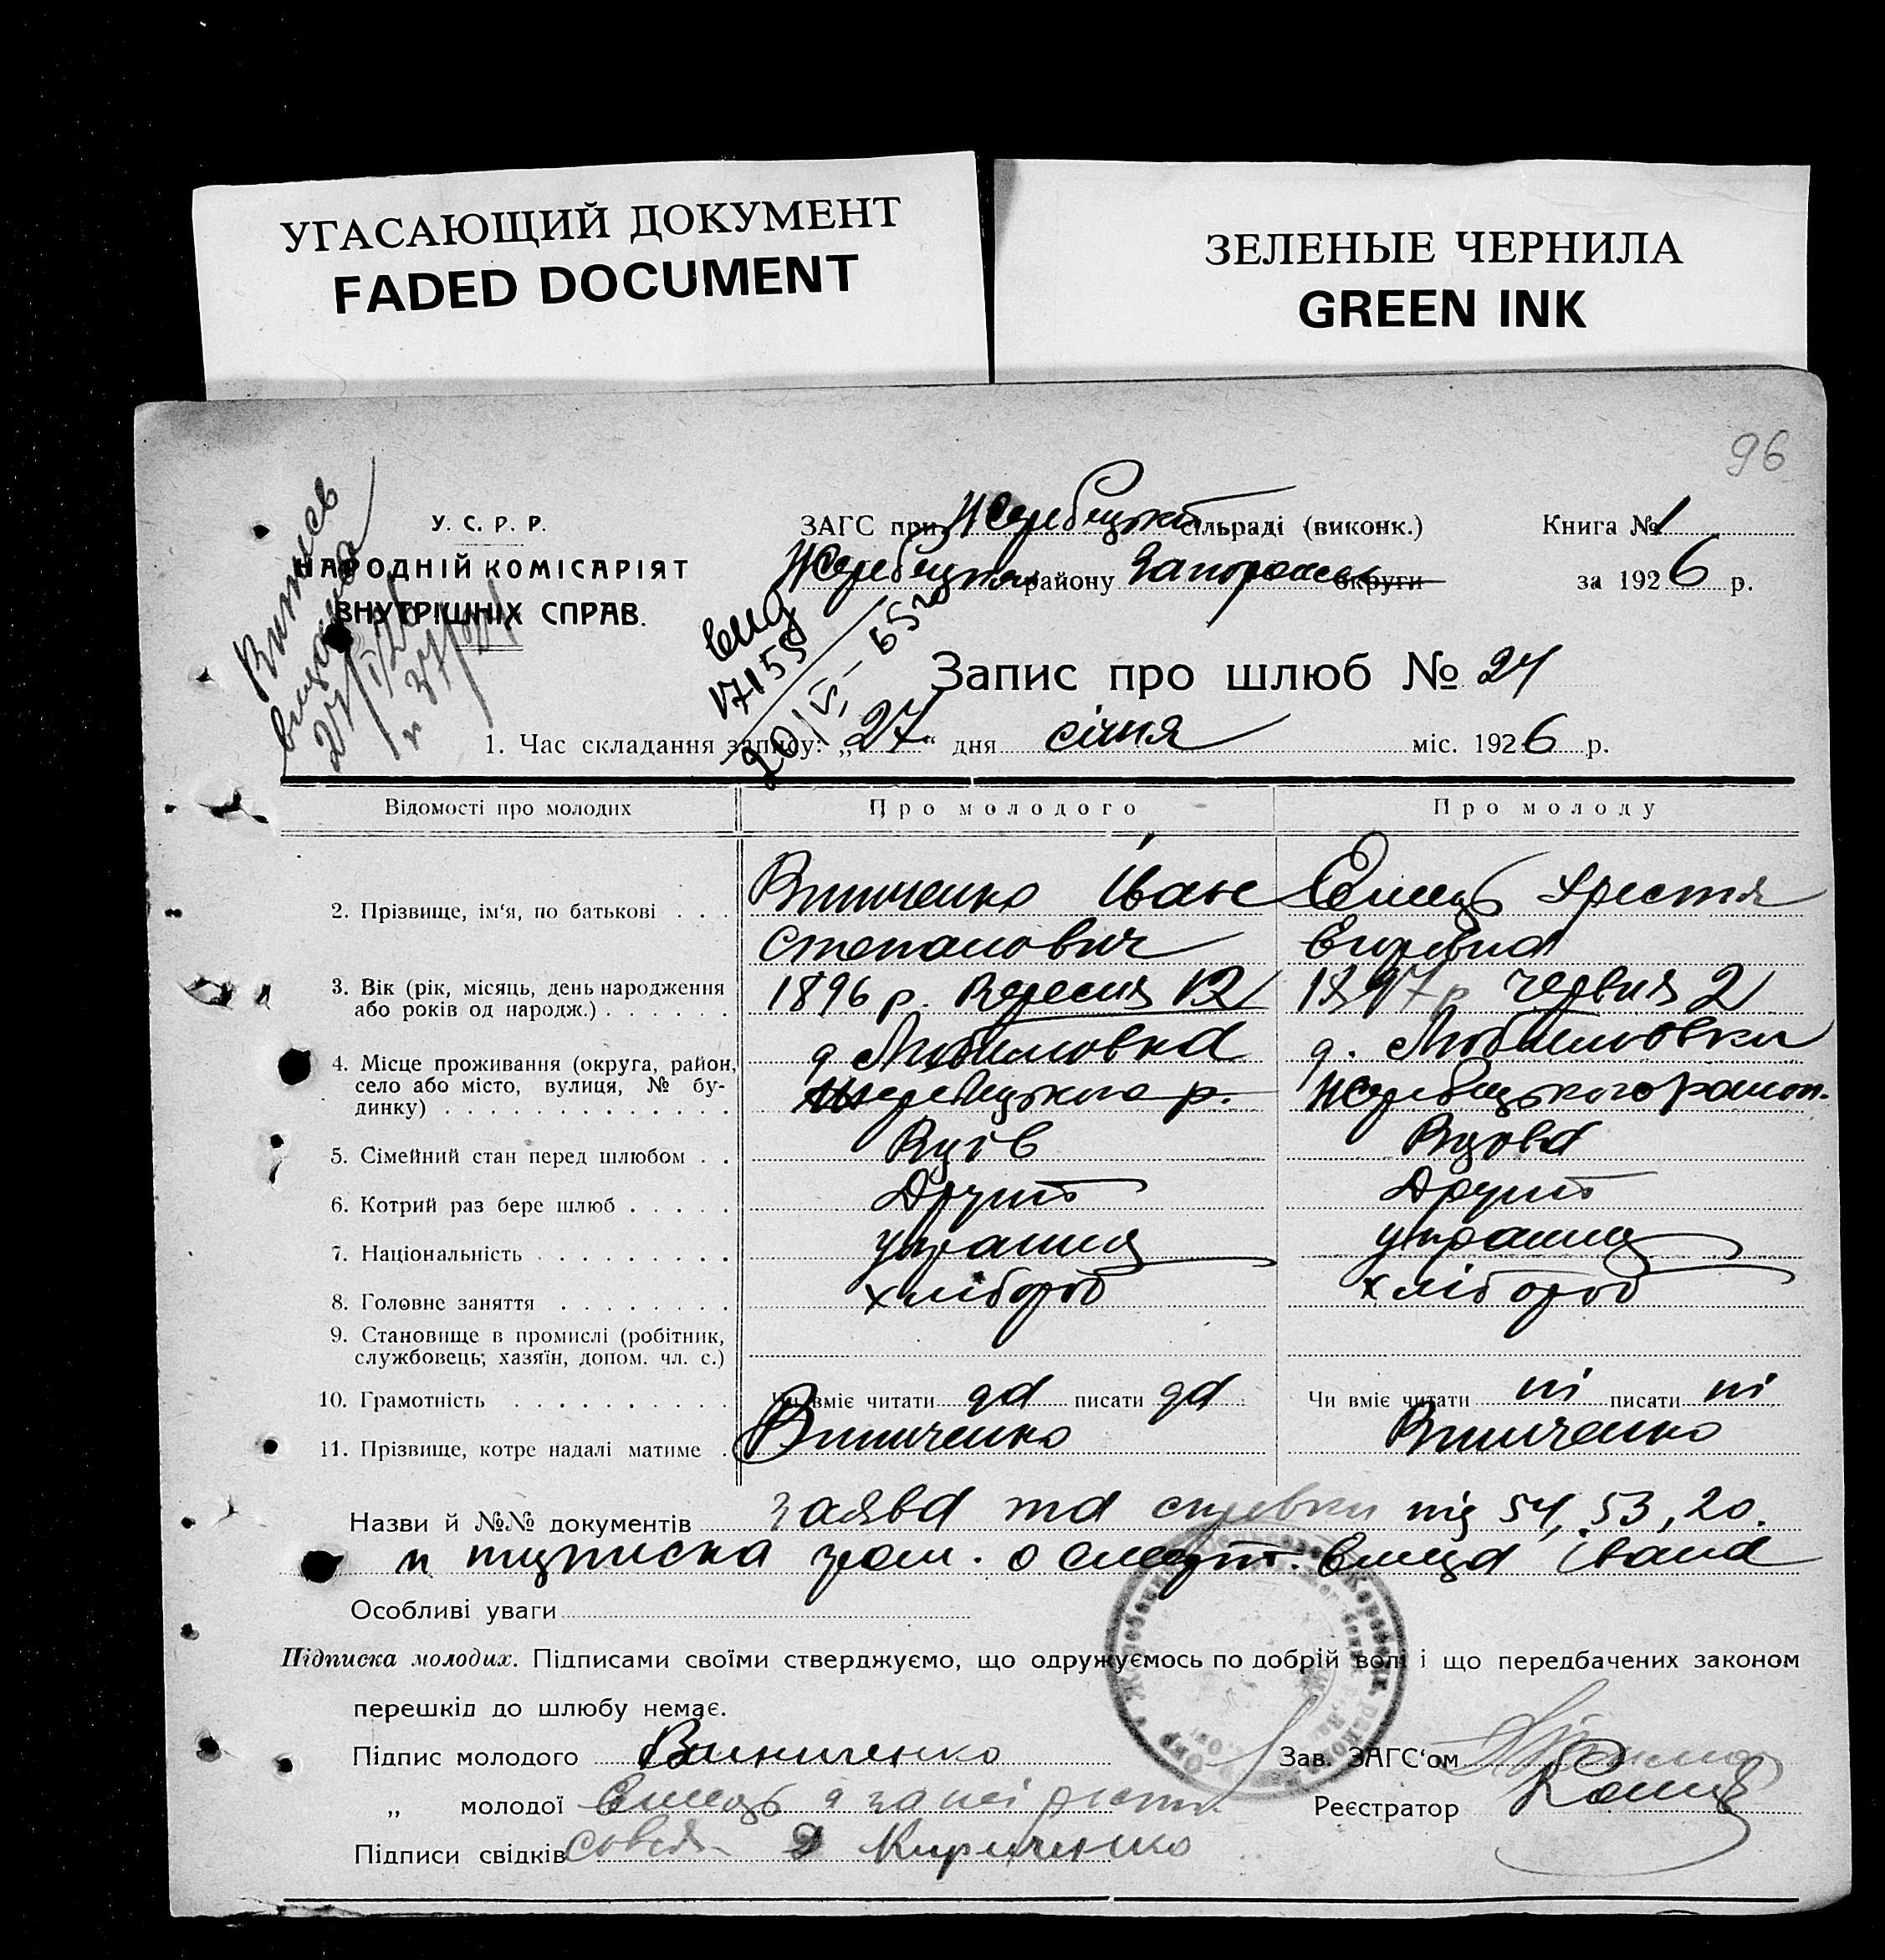 УГАСАЮЩИЙ ДОКУМЕНТ
FADED DOCUMENT
ЗЕЛЕНЫЕ ЧЕРНИЛА
GREEN INK
96
У. С. Р. Р.
НАРОДНІЙ КОМІСАРІЯТ
ВНУТРІШНІХ СПРАВ.
ЗАГС при Жеребецькій сільраді (виконк.)
Книга № 1
Жеребецького району Запорожськ округи
за 1926 р.
Витяг
видано
27/I/26
№ 37/24
вид
17155
20/VI-65
Запис про шлюб № 24
1. Час складання запису: „27“ дня січня міс. 1926 р.
Відомості про молодих
Про молодого
Про молоду
2. Прізвище, ім'я, по батькові . . .
Винниченко Іван
Степанович
Ємець Христя
Егоровна
3. Вік (рік, місяць, день народження
або років од народж.) . . . . . .
1896 р. Вересня 12
1897 р червня 2
4. Місце проживання (округа, район,
село або місто, вулиця, № бу-
динку) . . . . . . . . . . . . .
д Любимовка
Жеребецького р.
д. Любимовки
Жеребецького район.
5. Сімейний стан перед шлюбом . .
Вдів
Вдова
6. Котрий раз бере шлюб . . . . .
Другий
Другий
7. Національність . . . . . . . . .
україн
україн
8. Головне заняття . . . . . . . .
хлібороб
хлібороб
9. Становище в промислі (робітник,
службовець; хазяїн, допом. чл. с.)
10. Грамотність . . . . . . . . . .
Чи вміє читати да писати да
Чи вміє читати ні писати ні
11. Прізвище, котре надалі матиме .
Винниченко
Винниченко
Назви й №№ документів заява та справки під 54, 53, 20.
и підписка гром. о смерт. Ємця Івана
Особливі уваги
Підписка молодих. Підписами своїми стверджуємо, що одружуємось по добрій волі і що передбачених законом
перешкід до шлюбу немає.
Підпис молодого Винниченко
Зав. ЗАГС'ом
„ молодої Ємець а за неі
Реєстратор
Підписи свідків Кириченко